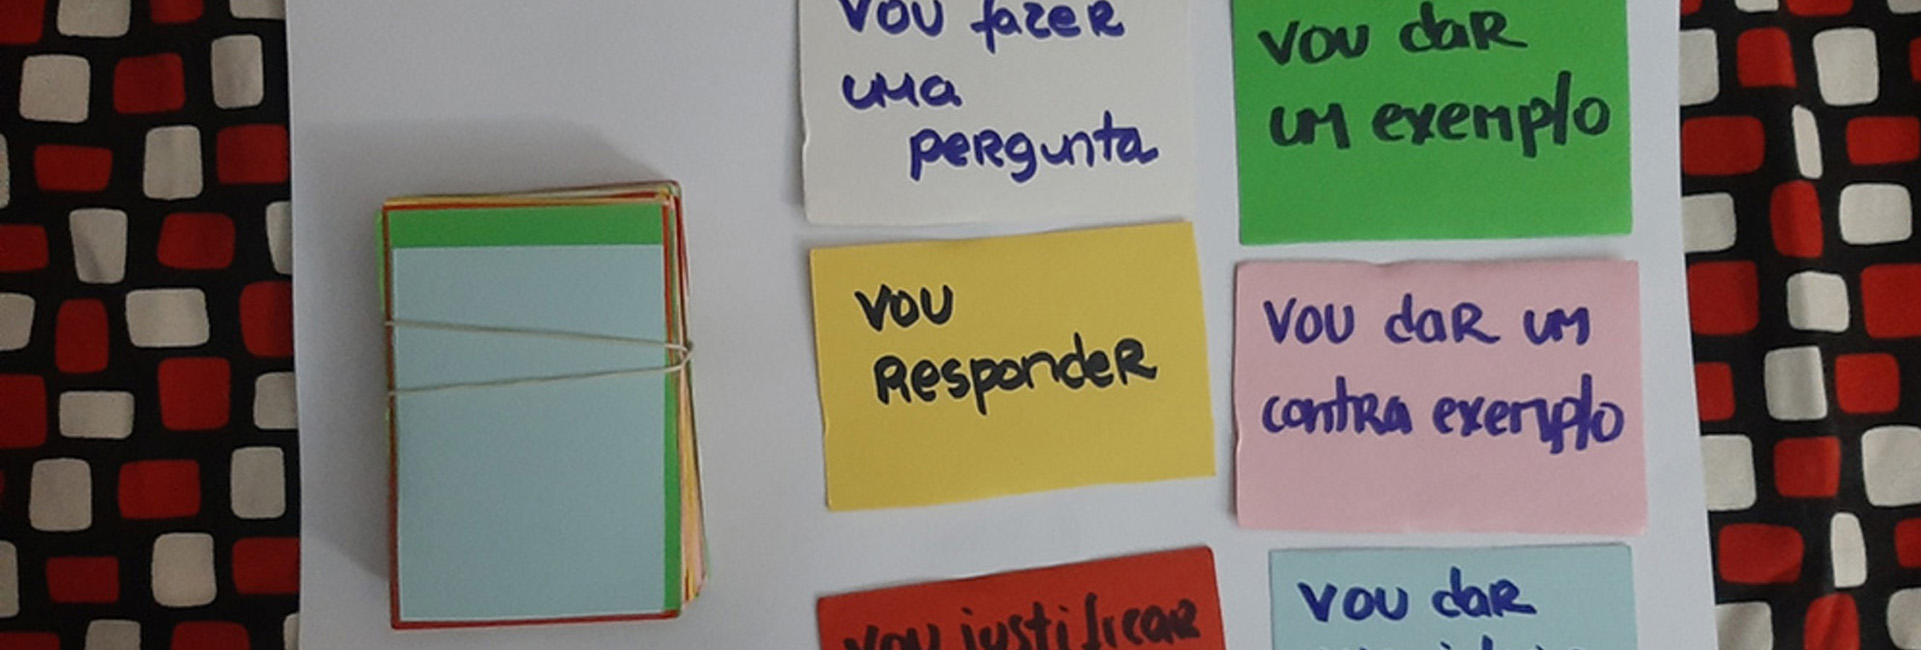 vou fazer
uma
pergunta
vou dar
um exemplo
vou
Responder
vou dar um
contra exemplo
vou justificar
vou dar